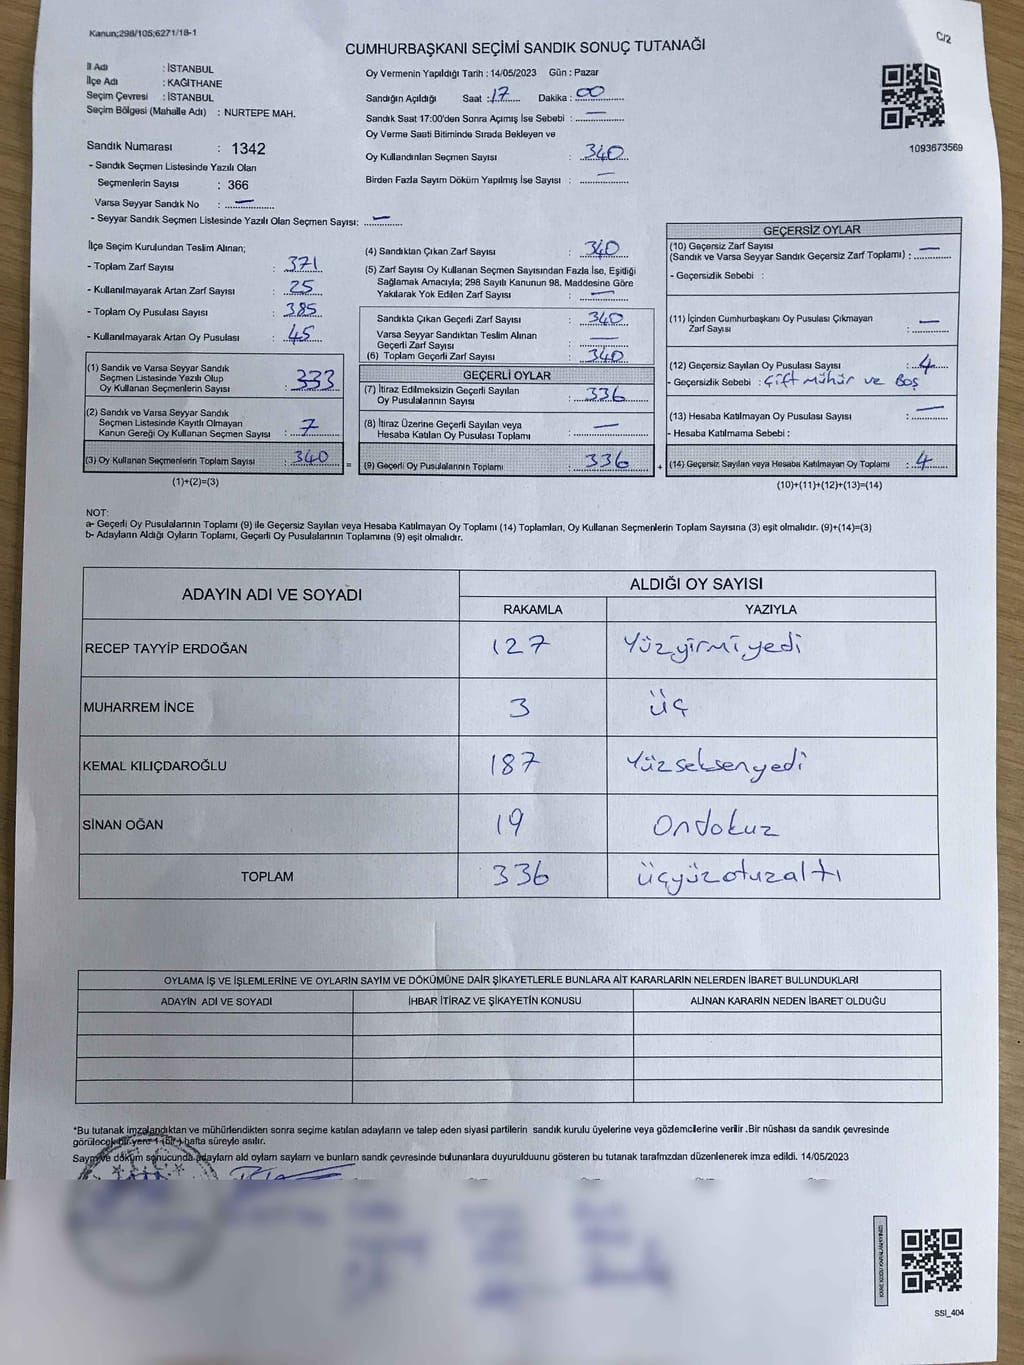 Kanun;298/105;6271/18-1
C/2
CUMHURBAŞKANI SEÇİMİ SANDIK SONUÇ TUTANAĞI
İl Adı : İSTANBUL
İlçe Adı : KAĞITHANE
Seçim Çevresi : İSTANBUL
Seçim Bölgesi (Mahalle Adı) : NURTEPE MAH.
Sandık Numarası : 1342
- Sandık Seçmen Listesinde Yazılı Olan
Seçmenlerin Sayısı : 366
Varsa Seyyar Sandık No : —
- Seyyar Sandık Seçmen Listesinde Yazılı Olan Seçmen Sayısı: —
Oy Vermenin Yapıldığı Tarih : 14/05/2023 Gün : Pazar
Sandığın Açıldığı Saat : 17 Dakika : 00
Sandık Saat 17:00'den Sonra Açımış İse Sebebi : —
Oy Verme Saati Bitiminde Sırada Bekleyen ve
Oy Kullandırılan Seçmen Sayısı : 340
Birden Fazla Sayım Döküm Yapılmış İse Sayısı : —
1093673569
İlçe Seçim Kurulundan Teslim Alınan;
- Toplam Zarf Sayısı : 371
- Kullanılmayarak Artan Zarf Sayısı : 25
- Toplam Oy Pusulası Sayısı : 385
- Kullanılmayarak Artan Oy Pusulası : 45
(1) Sandık ve Varsa Seyyar Sandık
Seçmen Listesinde Yazılı Olup
Oy Kullanan Seçmenlerin Sayısı : 333
(2) Sandık ve Varsa Seyyar Sandık
Seçmen Listesinde Kayıtlı Olmayan
Kanun Gereği Oy Kullanan Seçmen Sayısı : 7
(3) Oy Kullanan Seçmenlerin Toplam Sayısı : 340
(1)+(2)=(3)
(4) Sandıktan Çıkan Zarf Sayısı : 340
(5) Zarf Sayısı Oy Kullanan Seçmen Sayısından Fazla İse, Eşitliği
Sağlamak Amacıyla; 298 Sayılı Kanunun 98. Maddesine Göre
Yakılarak Yok Edilen Zarf Sayısı : —
Sandıkta Çıkan Geçerli Zarf Sayısı : 340
Varsa Seyyar Sandıktan Teslim Alınan
Geçerli Zarf Sayısı : —
(6) Toplam Geçerli Zarf Sayısı : 340
GEÇERLİ OYLAR
(7) İtiraz Edilmeksizin Geçerli Sayılan
Oy Pusulalarının Sayısı : 336
(8) İtiraz Üzerine Geçerli Sayılan veya
Hesaba Katılan Oy Pusulası Toplamı : —
= (9) Geçerli Oy Pusulalarının Toplamı : 336 +
GEÇERSİZ OYLAR
(10) Geçersiz Zarf Sayısı
(Sandık ve Varsa Seyyar Sandık Geçersiz Zarf Toplamı) : —
- Geçersizlik Sebebi :
(11) İçinden Cumhurbaşkanı Oy Pusulası Çıkmayan
Zarf Sayısı : —
(12) Geçersiz Sayılan Oy Pusulası Sayısı : 4
- Geçersizlik Sebebi : Çift Mühür ve Boş
(13) Hesaba Katılmayan Oy Pusulası Sayısı : —
- Hesaba Katılmama Sebebi :
(14) Geçersiz Sayılan veya Hesaba Katılmayan Oy Toplamı : 4
(10)+(11)+(12)+(13)=(14)
NOT:
a- Geçerli Oy Pusulalarının Toplamı (9) ile Geçersiz Sayılan veya Hesaba Katılmayan Oy Toplamı (14) Toplamları, Oy Kullanan Seçmenlerin Toplam Sayısına (3) eşit olmalıdır. (9)+(14)=(3)
b- Adayların Aldığı Oyların Toplamı, Geçerli Oy Pusulalarının Toplamına (9) eşit olmalıdır.
ADAYIN ADI VE SOYADI
ALDIĞI OY SAYISI
RAKAMLA YAZIYLA
RECEP TAYYİP ERDOĞAN 127 Yüzyirmiyedi
MUHARREM İNCE 3 üç
KEMAL KILIÇDAROĞLU 187 Yüzseksenyedi
SİNAN OĞAN 19 Ondokuz
TOPLAM 336 üçyüzotuzaltı
OYLAMA İŞ VE İŞLEMLERİNE VE OYLARIN SAYIM VE DÖKÜMÜNE DAİR ŞİKAYETLERLE BUNLARA AİT KARARLARIN NELERDEN İBARET BULUNDUKLARI
ADAYIN ADI VE SOYADI İHBAR İTİRAZ VE ŞİKAYETİN KONUSU ALINAN KARARIN NEDEN İBARET OLDUĞU
*Bu tutanak imzalandıktan ve mühürlendikten sonra seçime katılan adayların ve talep eden siyasi partilerin sandık kurulu üyelerine veya gözlemcilerine verilir .Bir nüshası da sandık çevresinde
görülecek bir yere 1 (bir ) hafta süreyle asılır.
Saym ve döküm sonucunda adaylarn ald oylarn saylarn ve bunlarn sandk çevresinde bulunanlara duyurulduunu gösteren bu tutanak tarafmzdan düzenlenerek imza edildi. 14/05/2023
SSI_404